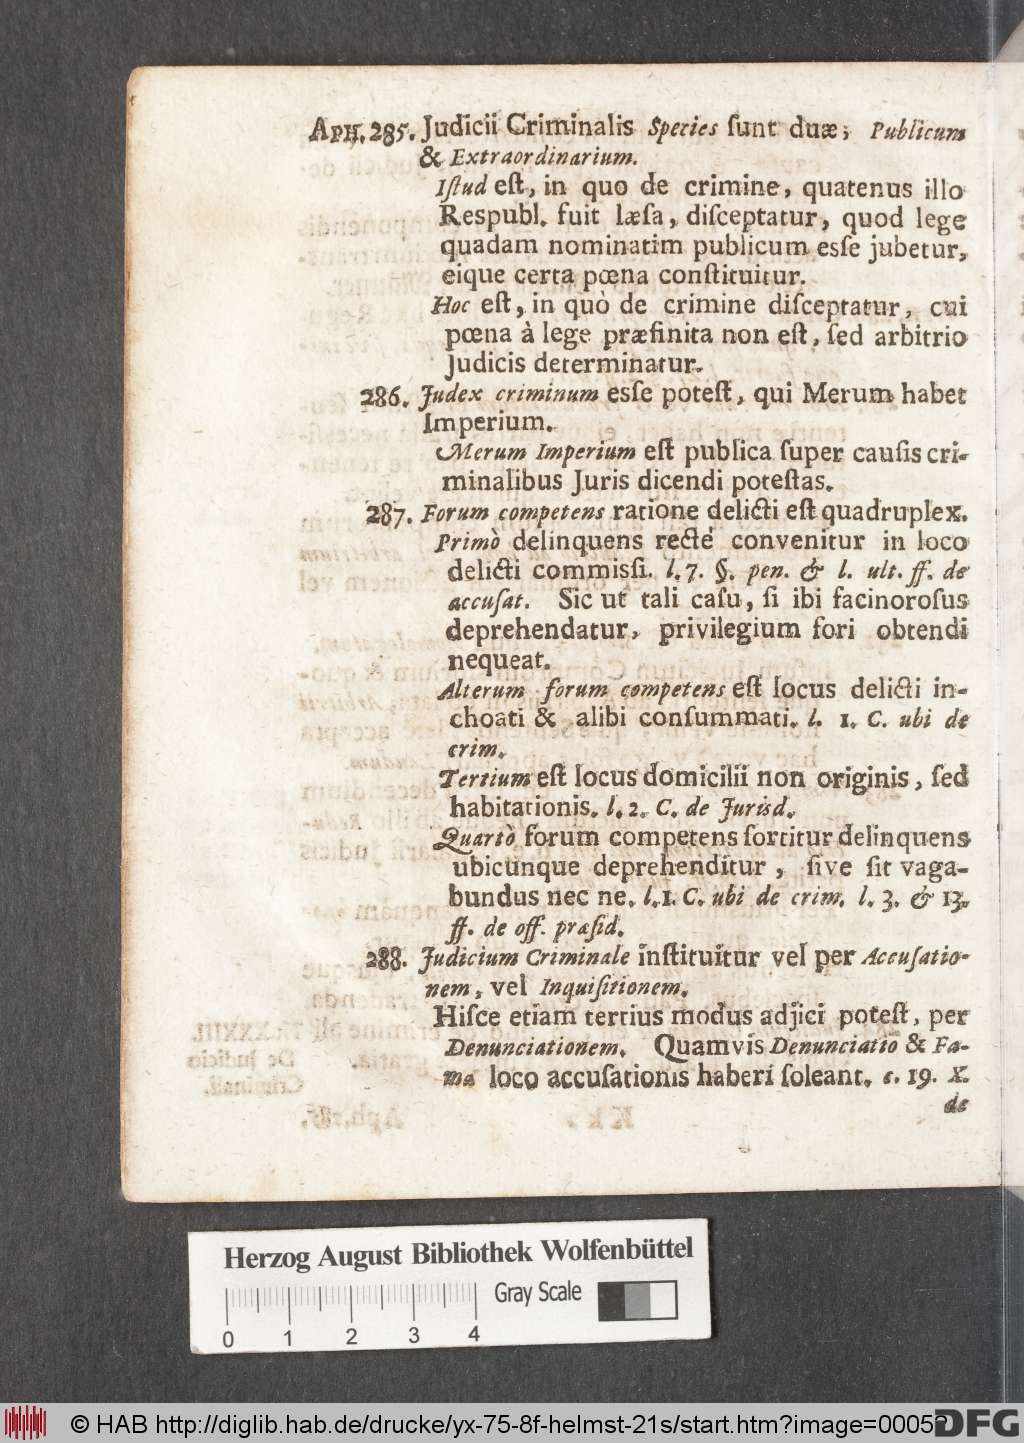 APH. 285. Judicii Criminalis Species ſunt duæ; Publicum
& Extraordinarium.
Iſtud eſt, in quo de crimine, quatenus illo
Respubl. fuit læſa, diſceptatur, quod lege
quadam nominatim publicum esſe jubetur,
eique certa pœna conſtituitur.
Hoc eſt, in quò de crimine diſceptatur, cui
pœna à lege præfinita non eſt, ſed arbitrio
Judicis determinatur.
286. Judex criminum esſe poteſt, qui Merum habet
Imperium.
Merum Imperium eſt publica ſuper cauſis cri-
minalibus Juris dicendi poteſtas.
287. Forum competens ratione delicti eſt quadruplex.
Primò delinquens rectè convenitur in loco
delicti commisſi. l. 7. §. pen. & l. ult. ff. de
accuſat. Sic ut tali caſu, ſi ibi facinoroſus
deprehendatur, privilegium fori obtendi
nequeat.
Alterum forum competens eſt locus delicti in-
choati & alibi conſummati. l. 1. C. ubi de
crim.
Tertium eſt locus domicilii non originis, ſed
habitationis. l. 2. C. de Jurisd.
Quartò forum competens ſortitur delinquens
ubicunque deprehenditur, ſive ſit vaga-
bundus nec ne. l. 1. C. ubi de crim. l. 3. & 13.
ff. de off. præſid.
288. Judicium Criminale inſtituitur vel per Accuſatio-
nem, vel Inquiſitionem.
Hiſce etiam tertius modus adjici poteſt, per
Denunciationem. Quamvis Denunciatio & Fa-
ma loco accuſationis haberi ſoleant. c. 19. X.
de
Herzog August Bibliothek Wolfenbüttel
Gray Scale
0 1 2 3 4
© HAB http://diglib.hab.de/drucke/yx-75-8f-helmst-21s/start.htm?image=00052
DFG